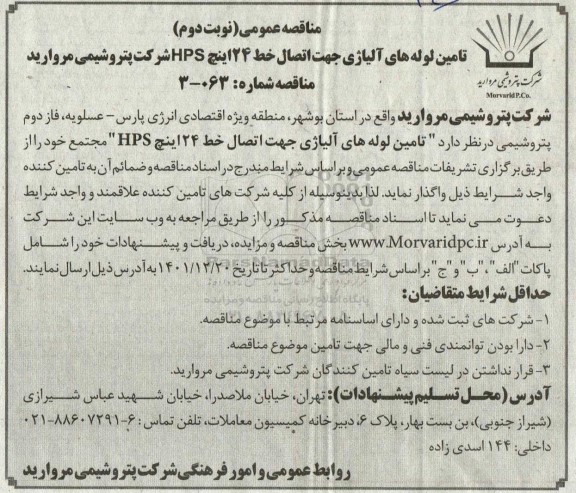 مناقصه عمومی (نوبت دوم)
تامین لوله های آلیاژی جهت اتصال خط ۲۴ اینچ HPS شرکت پتروشیمی مروارید
مناقصه شماره: ۰۶۳-۳
شرکت پتروشیمی مروارید
MorvaridP.Co.
شرکت پتروشیمی مروارید واقع در استان بوشهر، منطقه ویژه اقتصادی انرژی پارس- عسلویه، فاز دوم
پتروشیمی در نظر دارد " تامین لوله های آلیاژی جهت اتصال خط ۲۴ اینچ HPS " مجتمع خود را از
طریق برگزاری تشریفات مناقصه عمومی و بر اساس شرایط مندرج در اسناد مناقصه و ضمائم آن به تامین کننده
واجد شرایط ذیل واگذار نماید. لذا بدینوسیله از کلیه شرکت های تامین کننده علاقمند و واجد شرایط
دعوت می نماید تا اسناد مناقصه مذکور را از طریق مراجعه به وب سایت این شرکت
به آدرس www.Morvaridpc.ir بخش مناقصه و مزایده، دریافت و پیشنهادات خود را شامل
پاکات "الف"، "ب" و "ج" بر اساس شرایط مناقصه و حداکثر تا تاریخ ۱۴۰۱/۱۲/۲۰ به آدرس ذیل ارسال نمایند.
حداقل شرایط متقاضیان:
۱- شرکت های ثبت شده و دارای اساسنامه مرتبط با موضوع مناقصه.
۲- دارا بودن توانمندی فنی و مالی جهت تامین موضوع مناقصه.
۳- قرار نداشتن در لیست سیاه تامین کنندگان شرکت پتروشیمی مروارید.
آدرس (محل تسلیم پیشنهادات): تهران، خیابان ملاصدرا، خیابان شهید عباس شیرازی
(شیراز جنوبی)، بن بست بهار، پلاک ۶، دبیرخانه کمیسیون معاملات، تلفن تماس: ۶-۸۸۶۰۷۲۹۱-۰۲۱
داخلی: ۱۴۴ اسدی زاده
روابط عمومی و امور فرهنگی شرکت پتروشیمی مروارید